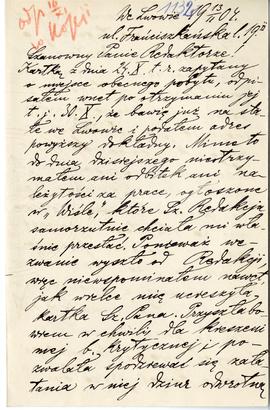 1132
We Lwowie 13/II 04.
ul. Franciszkańska l. 19
Szanowny Panie Redaktorze.
Kartką z dnia 27. X. t. r. zapytany
o miejsce obecnego pobytu, odpi-
sałem wnet po otrzymaniu jej
t. j. X, że bawię już na sta-
łe we Lwowie i podałem adres
powyższy dokładny. Mimo to
do dnia dzisiejszego nie otrzy-
małem ani odbitek ani na-
leżytości za prace, ogłoszone
w „Wiśle", które Sz. Redakcja
samorzutnie chciała mi wła-
śnie przesłać. Ponieważ we-
zwanie wyszło od Redakcji
więc nie wspominałem nawet,
jak wielce mię ucieszyła
kartka Sz. Pana. Przyszła bo-
wiem w chwili dla kieszeni
mej b. krytycznej i po-
zwalała spodziewać się zała-
tania w niej dziur odwrotną